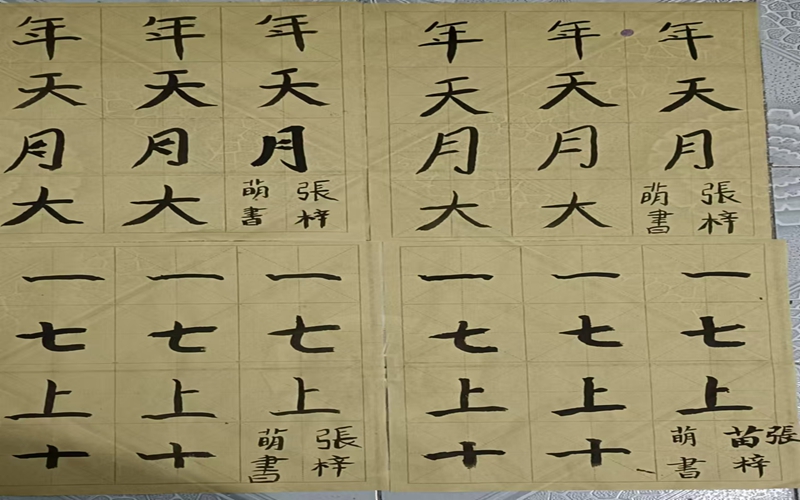 年 年 年
天 天 天
月 月 月
大 大
張梓
萌書
年 年 年
天 天 天
月 月 月
大 大
張梓
萌書
一 一 一
七 七 七
上 上 上
十 十
張梓
萌書
一 一 一
七 七 七
上 上 上
十 十
張
苗梓
萌書